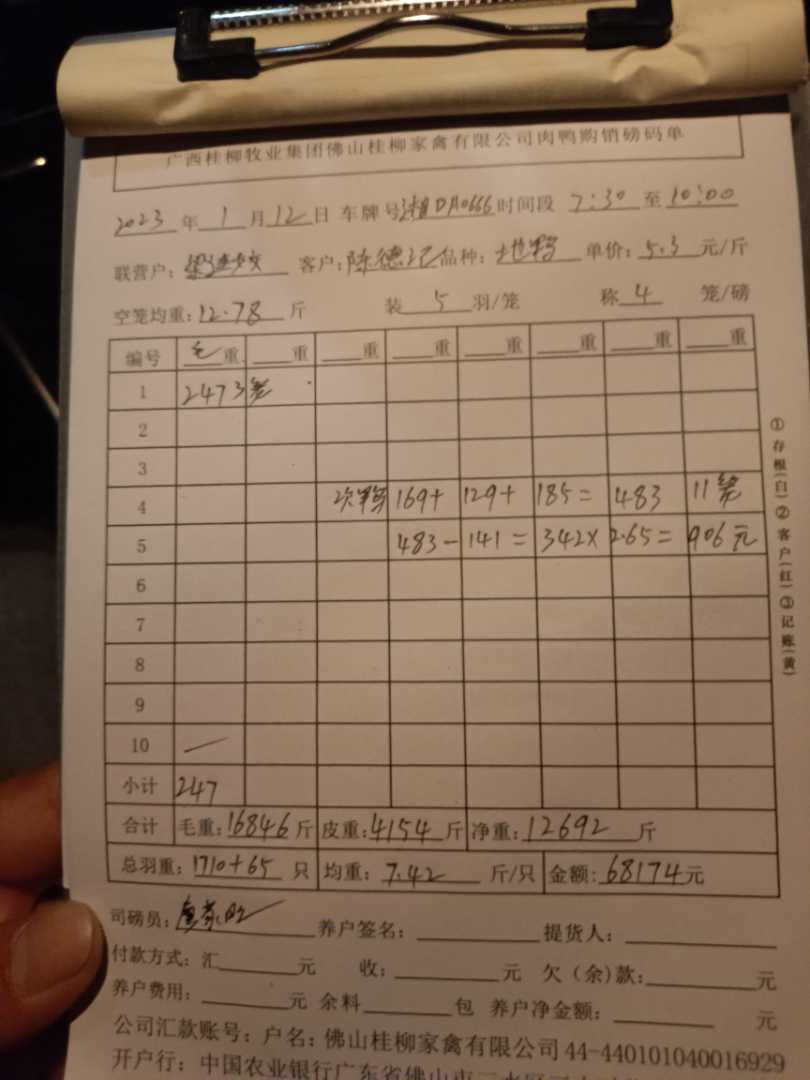 广西桂柳牧业集团佛山桂柳家禽有限公司肉鸭购销磅码单
2023 年 1 月 12 日 车牌号 湘DA0666 时间段 7:30 至 10:00
联营户: 客户: 陈德记 品种: 单价: 5.3 元/斤
空笼均重: 12.78 斤 装 5 羽/笼 称 4 笼/磅
编号 毛重 重 重 重 重 重 重 重
1 2473笼
2
3
4 次鸭 169+ 129+ 185= 483 11笼
5 483- 141= 342× 2.65= 906元
6
7
8
9
10
小计 247
合计 毛重: 16846 斤 皮重: 4154 斤 净重: 12692 斤
总羽重: 1710+65 只 均重: 7.42 斤/只 金额: 68174 元
司磅员: 养户签名: 提货人:
付款方式: 汇 元 收: 元 欠(余)款: 元
养户费用: 元 余料 包 养户净金额: 元
公司汇款账号: 户名: 佛山桂柳家禽有限公司 44-440101040016929
开户行: 中国农业银行广东省佛山市三水区
①存根(白)②客户(红)③记账(黄)